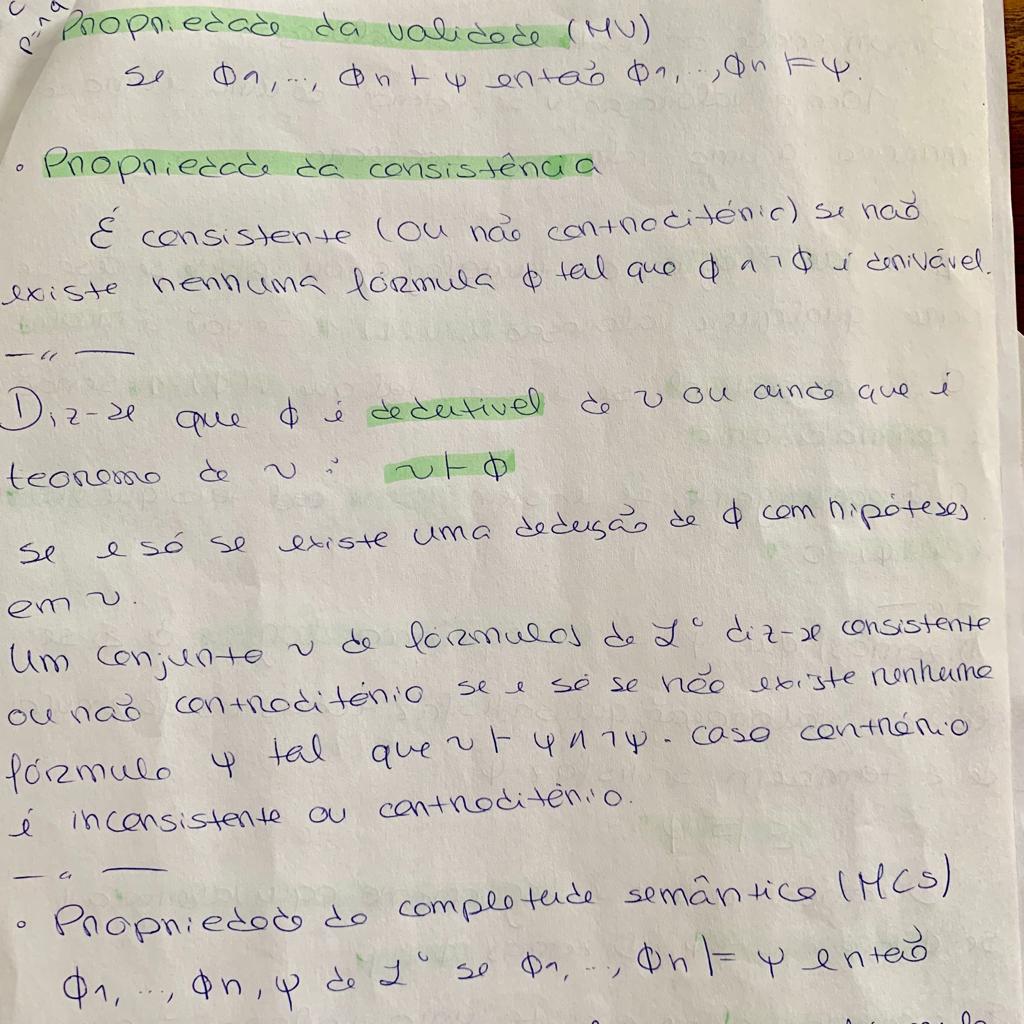 Propriedade da validade (MV)
Se Φ1, ..., Φn ⊢ ψ então Φ1, ..., Φn ⊨ ψ.
• Propriedade da consistência
É consistente (ou não contraditéric) se não
existe nenhuma fórmula ϕ tal que ϕ ∧ ¬ϕ é derivável.
— “ —
Diz-se que ϕ é dedutivel de ν ou ainda que é
teorema de ν : ν ⊢ Φ
se e só se existe uma dedução de ϕ com hipóteses
em ν.
Um conjunto ν de fórmulas de L° diz-se consistente
ou não contraditério se e só se não existe nenhuma
fórmula ψ tal que ν ⊢ ψ ∧ ¬ψ. caso contrário
é inconsistente ou contraditério.
— “ —
• Propriedade da completude semântica (MCS)
Φ1, ..., Φn, ψ de L° se Φ1, ..., Φn ⊨ ψ então